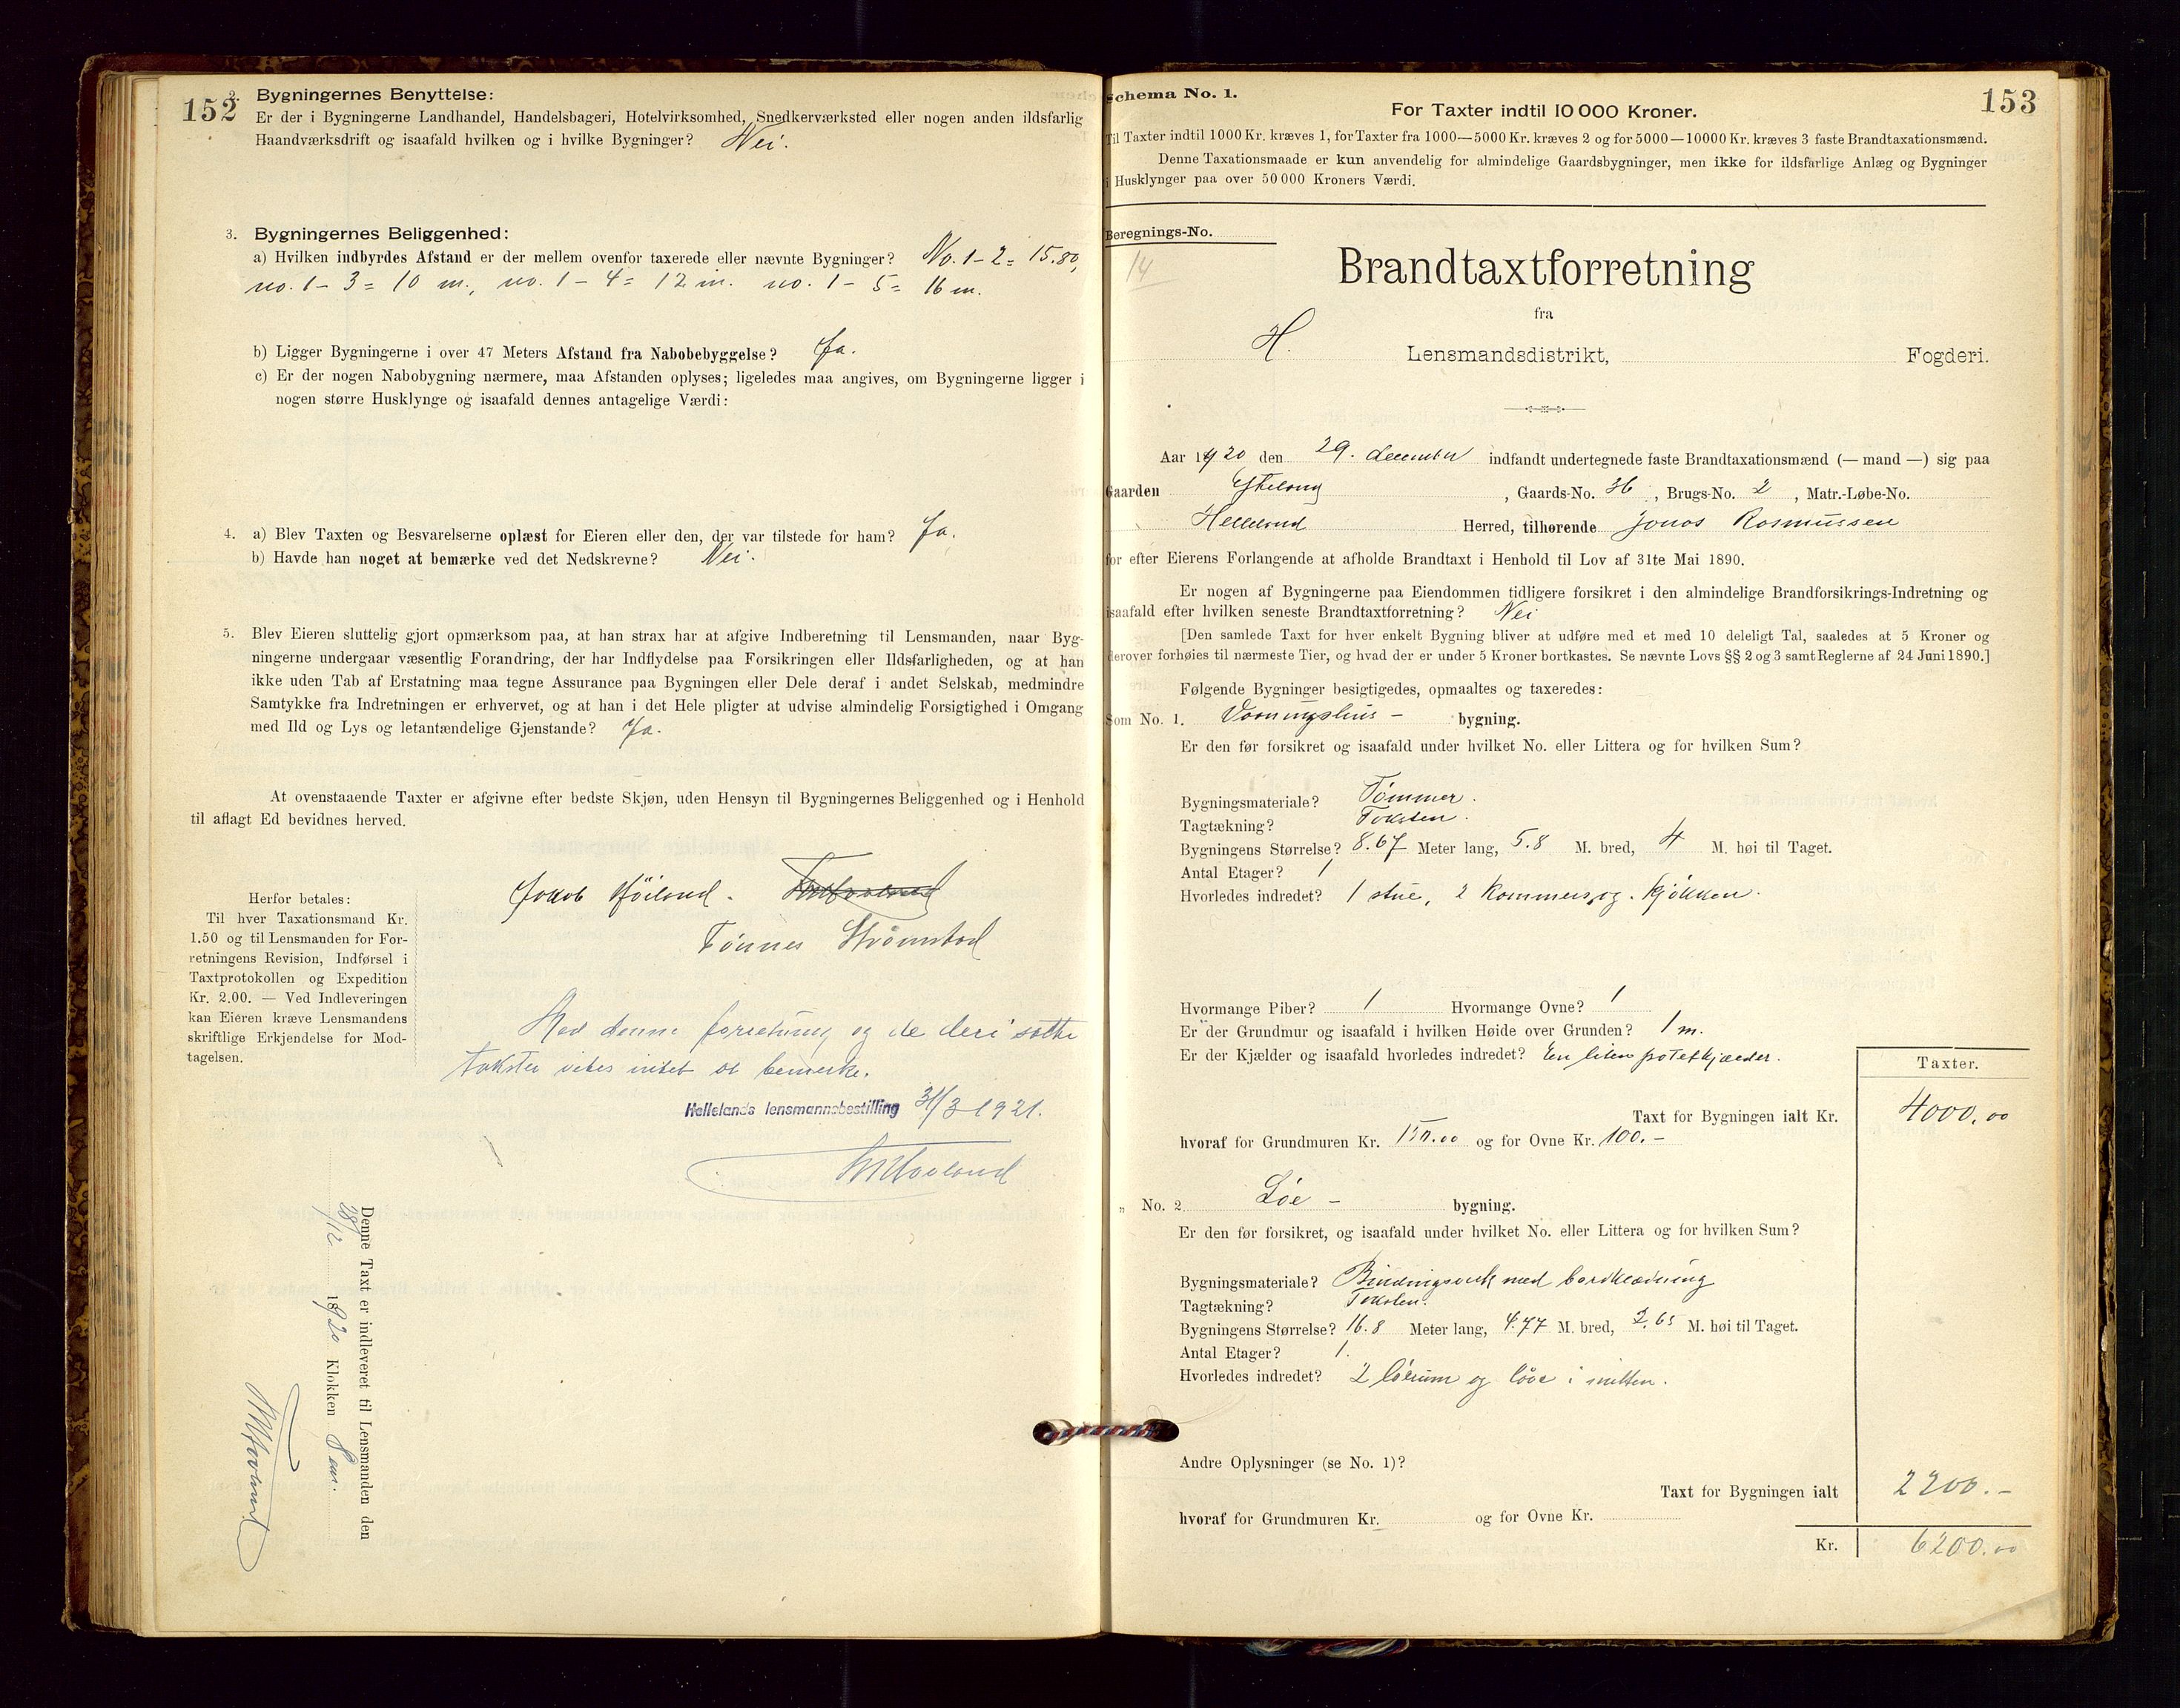 152
2. Bygningernes Benyttelse:
Er der i Bygningerne Landhandel, Handelsbageri, Hotelvirksomhed, Snedkerværksted eller nogen anden ildsfarlig
Haandværksdrift og isaafald hvilken og i hvilke Bygninger? Nei.
3. Bygningernes Beliggenhed:
a) Hvilken indbyrdes Afstand er der mellem ovenfor taxerede eller nævnte Bygninger? No. 1 - 2 = 15.80,
no. 1 - 3 = 10 m., no. 1 - 4 = 12 m. no. 1 - 5 = 16 m.
b) Ligger Bygningerne i over 47 Meters Afstand fra Nabobebyggelse? Ja.
c) Er der nogen Nabobygning nærmere, maa Afstanden oplyses; ligeledes maa angives, om Bygningerne ligger i
nogen større Husklynge og isaafald dennes antagelige Værdi:
4. a) Blev Taxten og Besvarelserne oplæst for Eieren eller den, der var tilstede for ham? Ja.
b) Havde han noget at bemærke ved det Nedskrevne? Nei.
5. Blev Eieren sluttelig gjort opmærksom paa, at han strax har at afgive Indberetning til Lensmanden, naar Byg-
ningerne undergaar væsentlig Forandring, der har Indflydelse paa Forsikringen eller Ildsfarligheden, og at han
ikke uden Tab af Erstatning maa tegne Assurance paa Bygningen eller Dele deraf i andet Selskab, medmindre
Samtykke fra Indretningen er erhvervet, og at han i det Hele pligter at udvise almindelig Forsigtighed i Omgang
med Ild og Lys og letantændelige Gjenstande? Ja.
At ovenstaaende Taxter er afgivne efter bedste Skjøn, uden Hensyn til Bygningernes Beliggenhed og i Henhold
til aflagt Ed bevidnes herved.
Jakob Høiland.
Tønnes Strømstad
Herfor betales:
Til hver Taxationsmand Kr.
1.50 og til Lensmanden for For-
retningens Revision, Indførsel i
Taxtprotokollen og Expedition
Kr. 2.00. — Ved Indleveringen
kan Eieren kræve Lensmandens
skriftlige Erkjendelse for Mod-
tagelsen.
Mod denne forretning og de deri satte
takster vites intet at bemerke.
Hellelands lensmannsbestilling 31/3 1921.
Denne Taxt er indleveret til Lensmanden den
28/12 1920 Klokken 8 em.
153
Schema No. 1.
For Taxter indtil 10 000 Kroner.
Til Taxter indtil 1000 Kr. kræves 1, for Taxter fra 1000—5000 Kr. kræves 2 og for 5000—10000 Kr. kræves 3 faste Brandtaxationsmænd.
Denne Taxationsmaade er kun anvendelig for almindelige Gaardsbygninger, men ikke for ildsfarlige Anlæg og Bygninger
i Husklynger paa over 50 000 Kroners Værdi.
Beregnings-No.
14
Brandtaxtforretning
fra
H. Lensmandsdistrikt, Fogderi.
Aar 1920 den 29. december indfandt undertegnede faste Brandtaxationsmænd (— mand —) sig paa
Gaarden , Gaards-No. 36, Brugs-No. 2, Matr.-Løbe-No.
Helleland Herred, tilhørende Jonas Rasmussen
for efter Eierens Forlangende at afholde Brandtaxt i Henhold til Lov af 31te Mai 1890.
Er nogen af Bygningerne paa Eiendommen tidligere forsikret i den almindelige Brandforsikrings-Indretning og
isaafald efter hvilken seneste Brandtaxtforretning? Nei
[Den samlede Taxt for hver enkelt Bygning bliver at udføre med et med 10 deleligt Tal, saaledes at 5 Kroner og
derover forhøies til nærmeste Tier, og hvad der er under 5 Kroner bortkastes. Se nævnte Lovs §§ 2 og 3 samt Reglerne af 24 Juni 1890.]
Følgende Bygninger besigtigedes, opmaaltes og taxeredes:
Som No. 1. Vaaningshus - bygning.
Er den før forsikret og isaafald under hvilket No. eller Littera og for hvilken Sum?
Bygningsmateriale? Tømmer.
Tagtækning? Taksten.
Bygningens Størrelse? 8.67 Meter lang, 5.8 M. bred, 4 M. høi til Taget.
Antal Etager? 1
Hvorledes indredet? 1 stue, 2 kammers og kjøkken.
Hvormange Piber? 1 Hvormange Ovne? 1
Er der Grundmur og isaafald i hvilken Høide over Grunden? 1 m.
Er der Kjælder og isaafald hvorledes indredet? En liten potetkjælder.
Taxter.
Taxt for Bygningen ialt Kr. 4000.00
hvoraf for Grundmuren Kr. 150.00 og for Ovne Kr. 100.-
„ No. 2. Løe - bygning.
Er den før forsikret, og isaafald under hvilket No. eller Littera og for hvilken Sum?
Bygningsmateriale? Bindingsverk med bordklædning
Tagtækning? Taksten.
Bygningens Størrelse? 16.8 Meter lang, 4.77 M. bred, 2.65 M. høi til Taget.
Antal Etager? 1.
Hvorledes indredet? 2 løerum og løve i mitten.
Andre Oplysninger (se No. 1)?
Taxt for Bygningen ialt 2200.-
hvoraf for Grundmuren Kr. og for Ovne Kr.
Kr. 6200.00